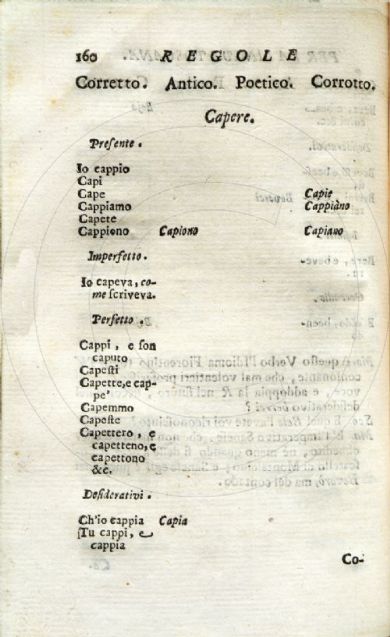 160 REGOLE
Corretto. Antico. Poetico. Corrotto.
Capere.
Presente.
Io cappio
Capi
Cape Capie
Cappiamo Cappiàno
Capete
Cappiono Capiono Capiano
Imperfetto.
Io capeva, co-
me scriveva.
Perfetto.
Cappi, e son
caputo
Capesti
Capette, e cap-
pe'
Capemmo
Capeste
Capettero, e
capetteno, e
capettono
&c.
Desiderativi.
Ch'io cappia Capia
Tu cappi, e
cappia
Co-